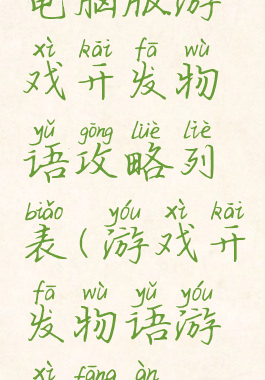 电脑版游
xì kāi fā wù
戏开发物
yǔ gōng lüè liè
语攻略列
biǎo yóu xì kāi
表(游戏开
fā wù yǔ yóu
发物语游
xì fāng àn